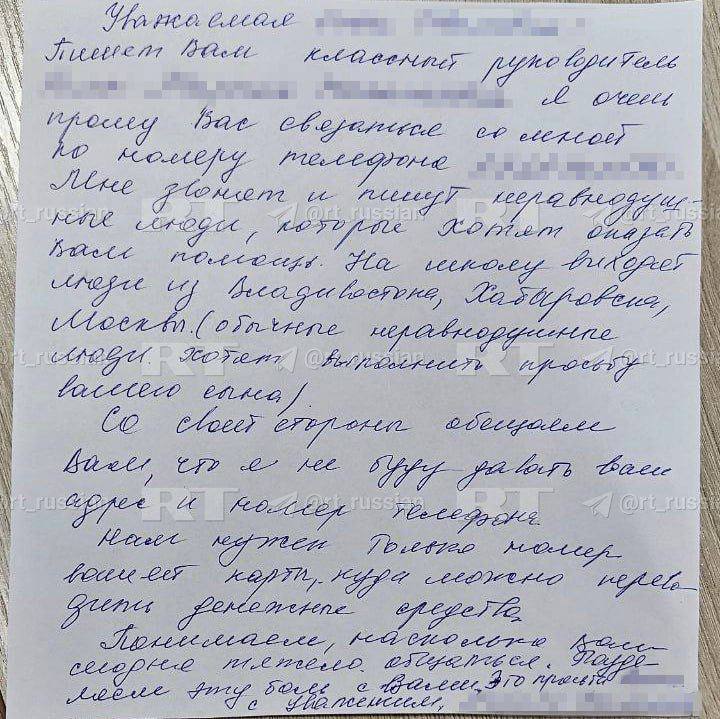 Уважаемая
Пишет Вам классный руководитель
Я очень
прошу Вас связаться со мной
по номеру телефона
Мне звонят и пишут неравнодуш-
ные люди, которые хотят оказать
Вам помощь. На школу выходят
люди из Владивостока, Хабаровска,
Москвы. (обычные неравнодушные
люди хотят выполнить просьбу
вашего сына)
Со своей стороны обещаем
Вам, что я не буду давать ваш
адрес и номер телефона
Нам нужен только номер
вашей карты, куда можно перево-
дить денежные средства.
Понимаем, насколько Вам
сегодня тяжело общаться. Разде-
ляем эту боль с Вами. Это просит
с уважением,
RT @rt_russian RT @rt_russian
RT @rt_russian RT @rt_russian
RT @rt_russian RT @rt_russian